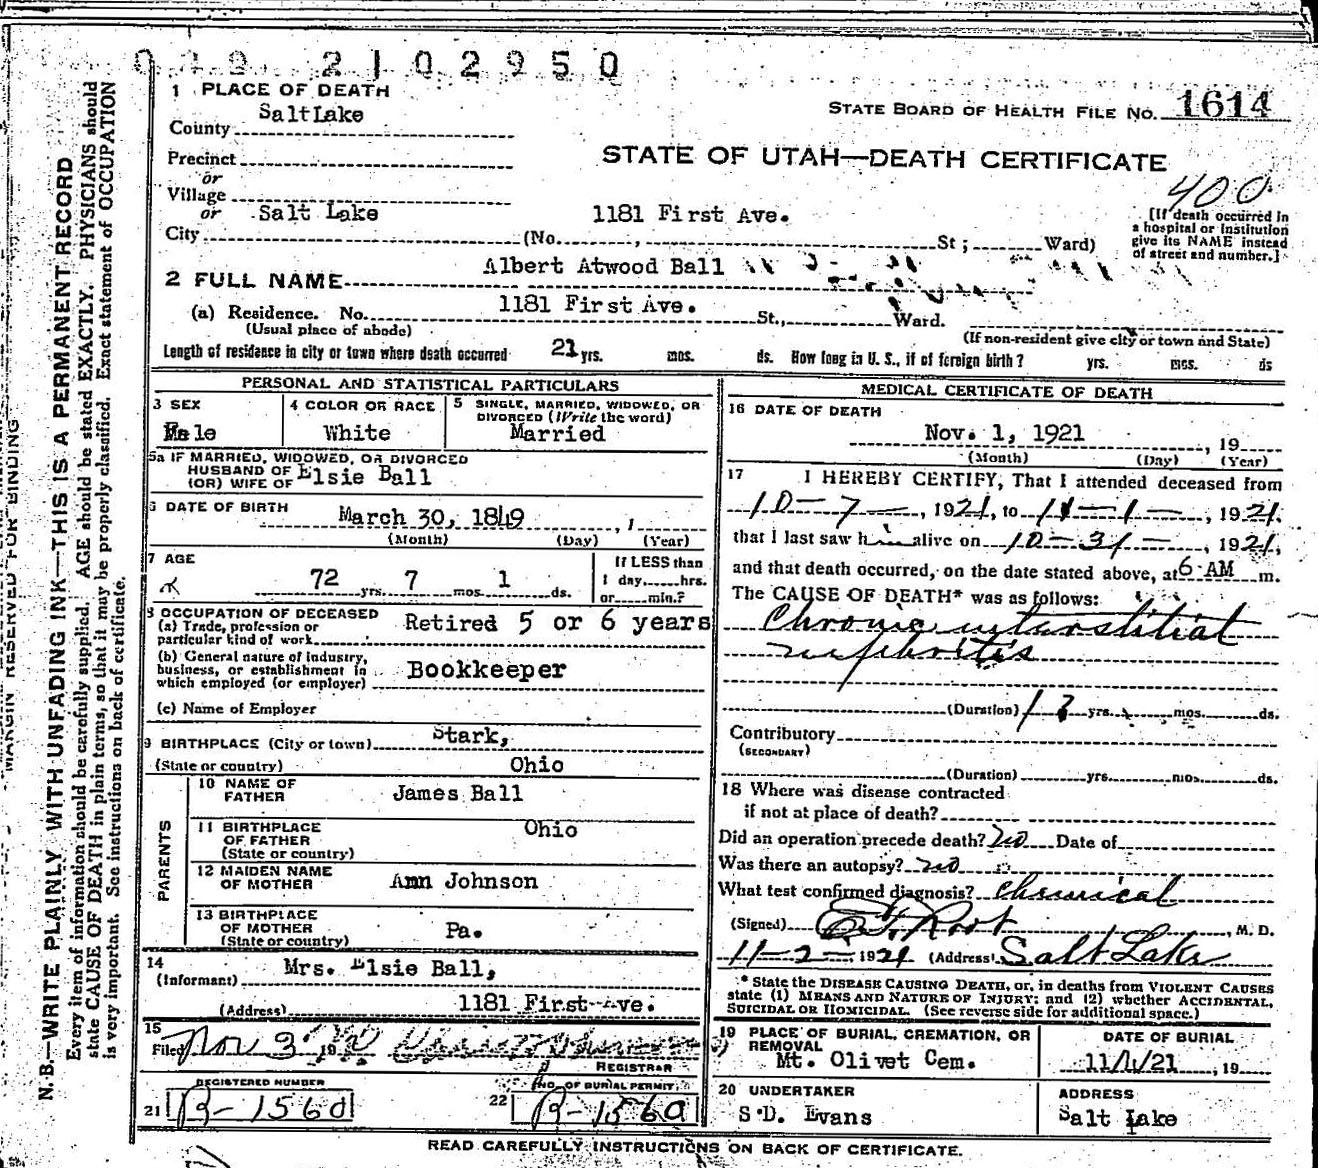 2102950
1 PLACE OF DEATH
STATE BOARD OF HEALTH FILE NO. 1614
County Salt Lake
STATE OF UTAH—DEATH CERTIFICATE
Precinct
or
Village
400
or
City Salt Lake (No. 1181 First Ave. St; Ward)
[If death occurred in
a hospital or institution
give its NAME instead
of street and number.]
2 FULL NAME Albert Atwood Ball
(a) Residence. No. 1181 First Ave. St., Ward.
(Usual place of abode)
(If non-resident give city or town and State)
Length of residence in city or town where death occurred 21 yrs. mos. ds. How long in U. S., if of foreign birth? yrs. mos. ds
PERSONAL AND STATISTICAL PARTICULARS
3 SEX
Male
4 COLOR OR RACE
White
5 SINGLE, MARRIED, WIDOWED, OR
DIVORCED (Write the word)
Married
5a IF MARRIED, WIDOWED, OR DIVORCED
HUSBAND OF
(OR) WIFE OF Elsie Ball
6 DATE OF BIRTH March 30, 1849
(Month) (Day) (Year)
7 AGE
72 yrs. 7 mos. 1 ds.
If LESS than
1 day, hrs.
or min.?
8 OCCUPATION OF DECEASED
(a) Trade, profession or
particular kind of work Retired 5 or 6 years
(b) General nature of industry,
business, or establishment in
which employed (or employer) Bookkeeper
(c) Name of Employer
9 BIRTHPLACE (City or town) Stark,
(State or country) Ohio
PARENTS
10 NAME OF
FATHER James Ball
11 BIRTHPLACE
OF FATHER
(State or country) Ohio
12 MAIDEN NAME
OF MOTHER Ann Johnson
13 BIRTHPLACE
OF MOTHER
(State or country) Pa.
14
(Informant) Mrs. Elsie Ball,
(Address) 1181 First Ave.
15
Filed Nov 3 19
REGISTRAR
REGISTERED NUMBER
21 B-1560
NO. OF BURIAL PERMIT
22 B-1560
MEDICAL CERTIFICATE OF DEATH
16 DATE OF DEATH
Nov. 1, 1921, 19
(Month) (Day) (Year)
17 I HEREBY CERTIFY, That I attended deceased from
10-7-, 1921, to 11-1-, 1921.
that I last saw him alive on 10-31-, 1921,
and that death occurred, on the date stated above, at 6 AM m.
The CAUSE OF DEATH* was as follows:
Chronic interstitial
nephritis
(Duration) yrs. mos. ds.
Contributory
(SECONDARY)
(Duration) yrs. mos. ds.
18 Where was disease contracted
if not at place of death?
Did an operation precede death? no Date of
Was there an autopsy? no
What test confirmed diagnosis? Chemical
(Signed) Root, M. D.
11-2-1921 (Address) Salt Lake
* State the DISEASE CAUSING DEATH, or, in deaths from VIOLENT CAUSES
state (1) MEANS AND NATURE OF INJURY; and (2) whether ACCIDENTAL,
SUICIDAL OR HOMICIDAL. (See reverse side for additional space.)
19 PLACE OF BURIAL, CREMATION, OR
REMOVAL
Mt. Olivet Cem.
DATE OF BURIAL
11/4/21, 19
20 UNDERTAKER
S.D. Evans
ADDRESS
Salt Lake
READ CAREFULLY INSTRUCTIONS ON BACK OF CERTIFICATE.
MARGIN RESERVED FOR BINDING
N. B.—WRITE PLAINLY WITH UNFADING INK—THIS IS A PERMANENT RECORD
Every item of information should be carefully supplied. AGE should be stated EXACTLY. PHYSICIANS should
state CAUSE OF DEATH in plain terms, so that it may be properly classified. Exact statement of OCCUPATION
is very important. See instructions on back of certificate.